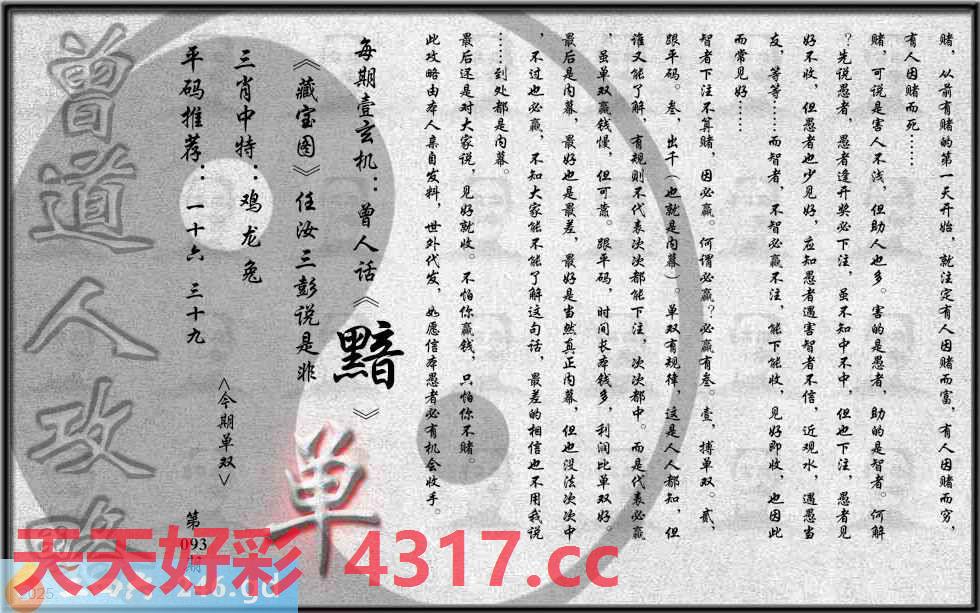 赌，从前有赌的第一天开始，就注定有人因赌而富，有人因赌而穷，
有人因赌而死……
赌，可说是害人不浅，但助人也多。害的是愚者，助的是智者。何解
？先说愚者，愚者逢开奖必下注，虽不知中不中，但也下注，愚者见
好不收，但愚者也少见好，应知愚者遇害智者不信，近观水，遇愚当
友，等等……而智者，不智必赢不注，能下能收，见好即收，也因此
而常见好……
智者下注不算赌，因必赢。何谓必赢？必赢有叁。壹，搏单双。贰，
跟平码。叁，出千（也就是内幕）。单双有规律，这是人人都知，但
谁又能了解，有规则不代表次次都能下注，次次都中。而是代表必赢
，虽单双赢钱慢，但可靠。跟平码，时间长本钱多，利润比单双好。
最后是内幕，最好也是最差，最好是当然真正内幕，但也没法次次中
，不过也必赢，不知大家能不能了解这句话，最差的相信也不用我说
……到处都是内幕。
最后还是对大家说，见好就收。不怕你赢钱，只怕你不赌。
此攻略由本人亲自发料，世外代发，如愿信本愚者必有机会收手。
每期壹玄机：曾人话《黯》
《藏宝图》任汝三彭说是非
三肖中特：鸡龙兔
平码推荐：一十六 三十九
<今期单双>
单
第
093
期
曾道人攻略
天天好彩 4317.cc
2025
246.gd